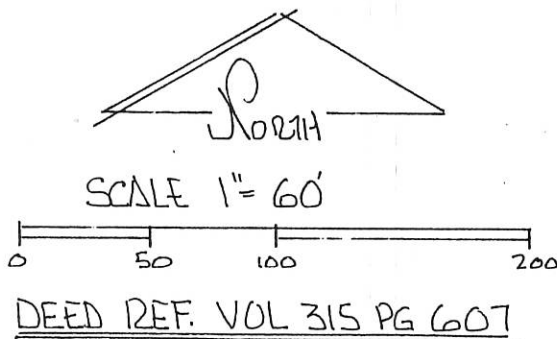 NORTH
SCALE 1"= 60'
0 50 100 200
DEED REF. VOL 315 PG 607